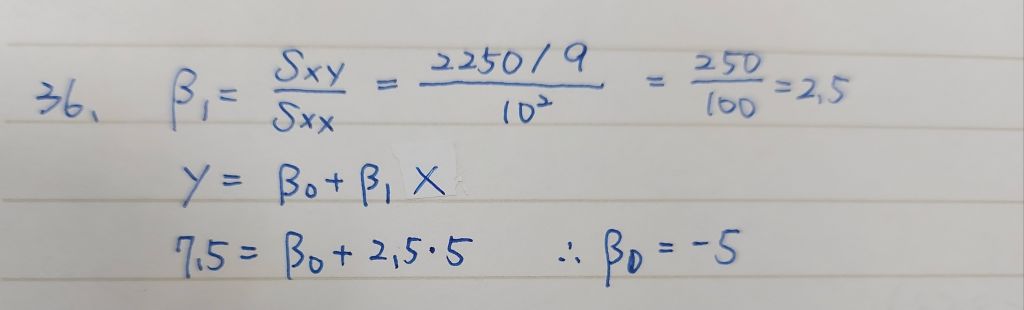 36. β₁ = Sxy/Sxx = (2250/9)/10² = 250/100 = 2.5
y = β₀ + β₁ x
7.5 = β₀ + 2.5·5 ∴ β₀ = -5